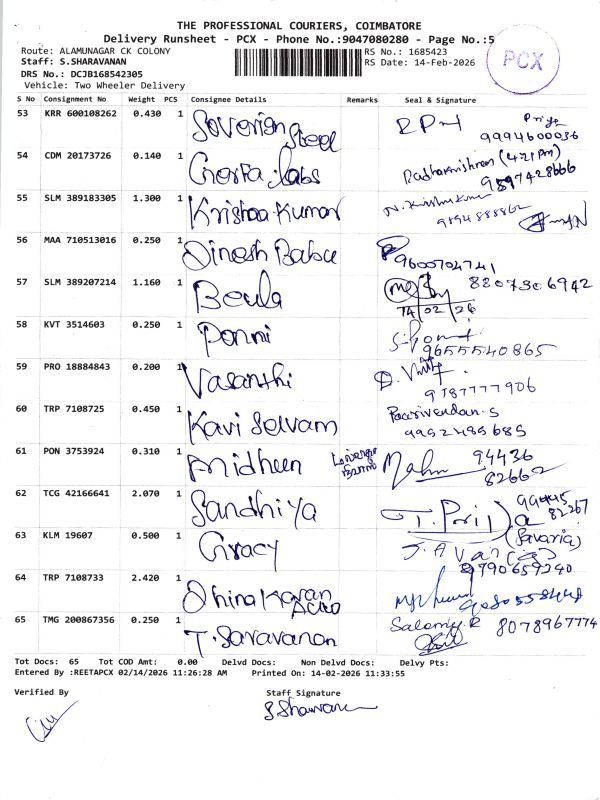 THE PROFESSIONAL COURIERS, COIMBATORE
Delivery Runsheet - PCX - Phone No.:9047080280 - Page No.:5
Route: ALAMUNAGAR CK COLONY
RS No.: 1685423
Staff: S.SHARAVANAN
RS Date: 14-Feb-2026
PCX
DRS No.: DCJB168542305
Vehicle: Two Wheeler Delivery
S No Consignment No Weight PCS Consignee Details Remarks Seal & Signature
53 KRR 600108262 0.430 1 Soverign Steel Priya
9994600036
54 CDM 20173726 0.140 1 Radhakrishnan (4:21 pm)
9597428666
55 SLM 389183305 1.300 1 Krishna Kumar
9894888862
56 MAA 710513016 0.250 1 Dinesh Babu
9600704741
57 SLM 389207214 1.160 1 Beula 8807306942
14/02/26
58 KVT 3514603 0.250 1 Ponni
9655540865
59 PRO 18884843 0.200 1 Vasanthi
9787777906
60 TRP 7108725 0.450 1 Kavi Selvam Paarivendan.S
9952485685
61 PON 3753924 0.310 1 94436
82662
62 TCG 42166641 2.070 1 Sandhiya 99445
82267
63 KLM 19607 0.500 1 Gracy
8790659240
64 TRP 7108733 2.420 1
65 TMG 200867356 0.250 1 T.Saravanan Salomy.R 8078967774
Tot Docs: 65 Tot COD Amt: 0.00 Delvd Docs: Non Delvd Docs: Delvy Pts:
Entered By :REETAPCX 02/14/2026 11:26:28 AM Printed On: 14-02-2026 11:33:55
Verified By Staff Signature